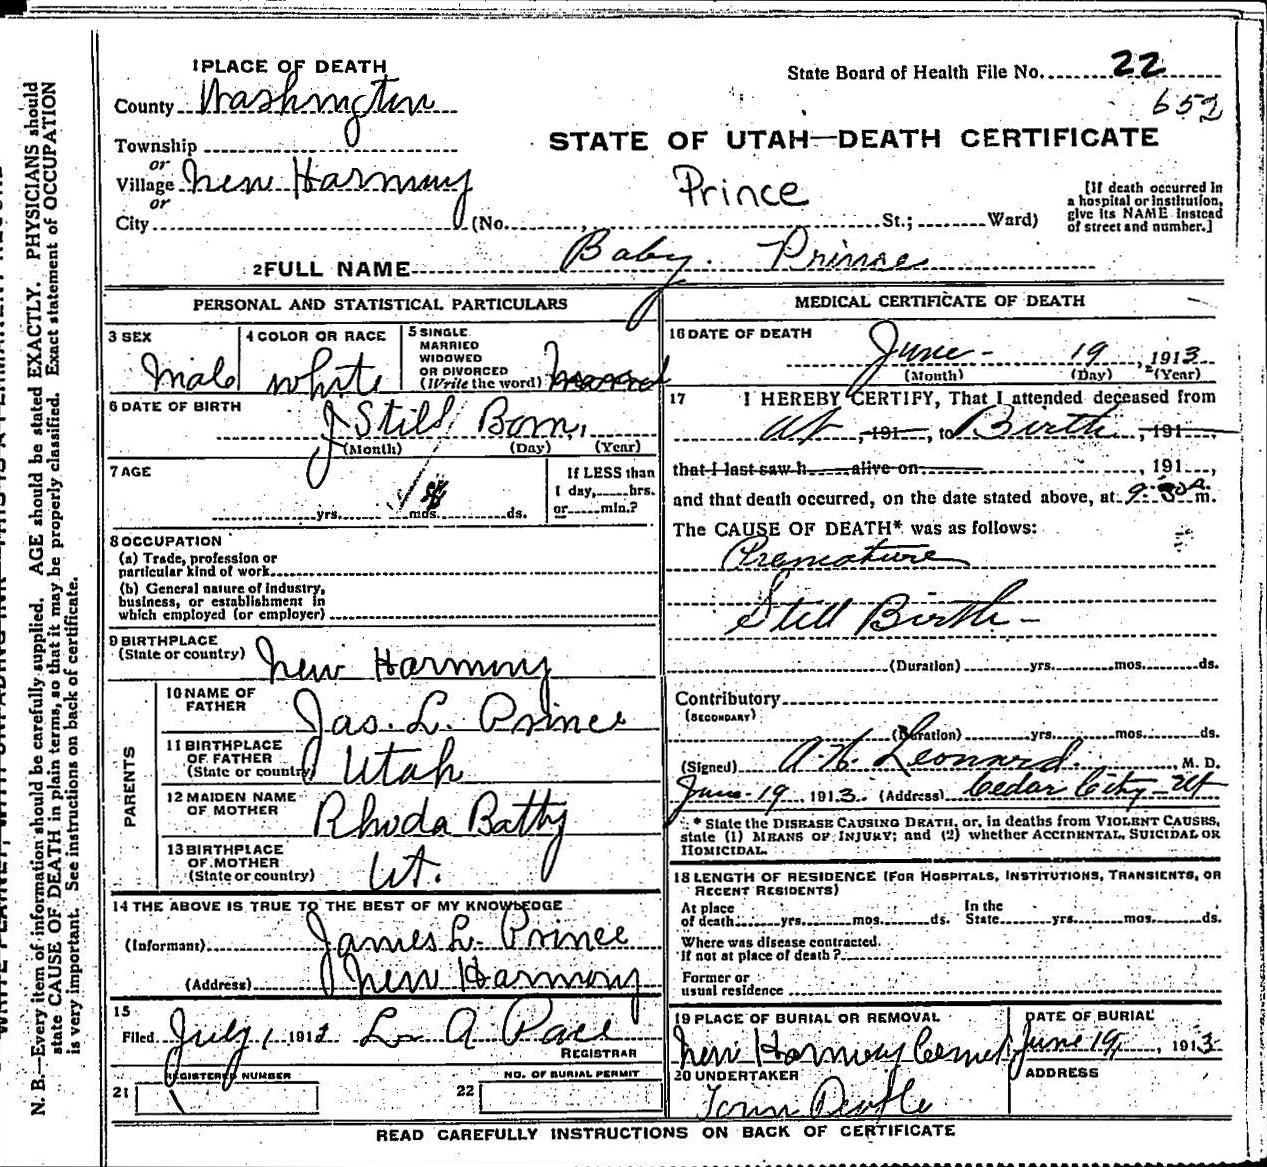 1 PLACE OF DEATH
State Board of Health File No. 22
County Washington
652
Township
STATE OF UTAH—DEATH CERTIFICATE
or
Village New Harmony
Prince
or
City (No. , St.; Ward)
[If death occurred in
a hospital or institution,
give its NAME instead
of street and number.]
2 FULL NAME Baby Prince
PERSONAL AND STATISTICAL PARTICULARS
3 SEX
Male
4 COLOR OR RACE
white
5 SINGLE
MARRIED
WIDOWED
OR DIVORCED
(Write the word)
6 DATE OF BIRTH
Still Born
(Month) (Day) (Year)
7 AGE
yrs. mos. ds.
If LESS than
1 day, hrs.
or min.?
8 OCCUPATION
(a) Trade, profession or
particular kind of work
(b) General nature of industry,
business, or establishment in
which employed (or employer)
9 BIRTHPLACE
(State or country) New Harmony
PARENTS
10 NAME OF
FATHER Jas. L. Prince
11 BIRTHPLACE
OF FATHER
(State or country) Utah
12 MAIDEN NAME
OF MOTHER Rhoda Batty
13 BIRTHPLACE
OF MOTHER
(State or country) Ut.
14 THE ABOVE IS TRUE TO THE BEST OF MY KNOWLEDGE
(Informant) James L. Prince
(Address) New Harmony
15
Filed July 1 191 L A Pace
REGISTRAR
REGISTERED NUMBER
21
NO. OF BURIAL PERMIT
22
MEDICAL CERTIFICATE OF DEATH
16 DATE OF DEATH
June 19, 1913
(Month) (Day) (Year)
17 I HEREBY CERTIFY, That I attended deceased from
at, 191, to Birth, 191
that I last saw h alive on , 191 ,
and that death occurred, on the date stated above, at m.
The CAUSE OF DEATH* was as follows:
Premature
Still Birth
(Duration) yrs. mos. ds.
Contributory
(SECONDARY)
(Duration) yrs. mos. ds.
(Signed) Leonard, M. D.
June 19, 1913. (Address) Cedar City Ut
* State the DISEASE CAUSING DEATH, or, in deaths from VIOLENT CAUSES,
state (1) MEANS OF INJURY; and (2) whether ACCIDENTAL, SUICIDAL OR
HOMICIDAL.
18 LENGTH OF RESIDENCE (FOR HOSPITALS, INSTITUTIONS, TRANSIENTS, OR
RECENT RESIDENTS)
At place
of death yrs. mos. ds.
In the
State yrs. mos. ds.
Where was disease contracted.
if not at place of death?
Former or
usual residence
19 PLACE OF BURIAL OR REMOVAL
New Harmony Cemet
DATE OF BURIAL
June 19, 1913
20 UNDERTAKER
ADDRESS
READ CAREFULLY INSTRUCTIONS ON BACK OF CERTIFICATE
N. B.—Every item of information should be carefully supplied. AGE should be stated EXACTLY. PHYSICIANS should
state CAUSE OF DEATH in plain terms, so that it may be properly classified. Exact statement of OCCUPATION
is very important. See instructions on back of certificate.